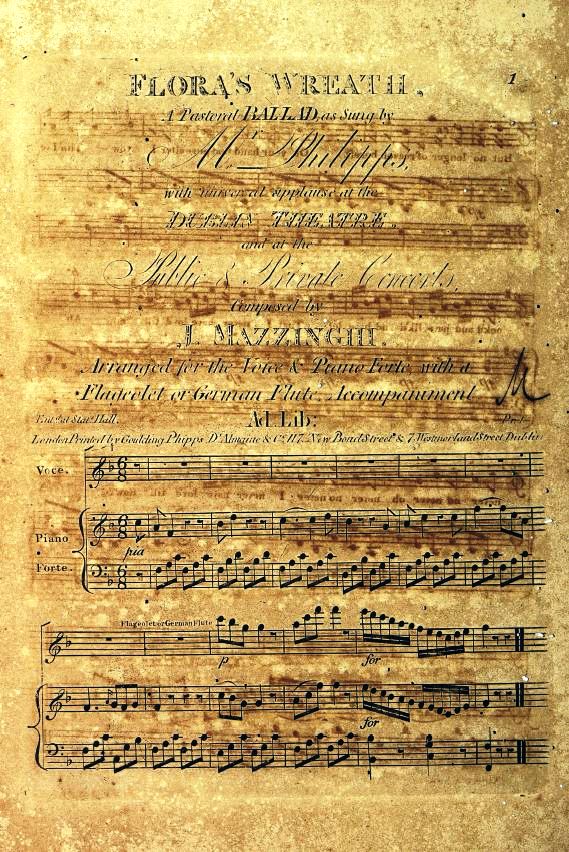 1
FLORA'S WREATH.
A Pastoral BALLAD, as Sung by
Mr. Philipps,
with universal applause at the
DUBLIN THEATRE.
and at the
Public & Private Concerts,
Composed by
J. MAZZINGHI.
Arranged for the Voice & Piano Forte, with a
Flageolet or German Flute, Accompaniment
Ad. Lib:
Ent.d at Sta.rs Hall.
London Printed by Goulding Phipps D'Almaine & Co. 117 New Bond Street & 7 Westmorland Street Dublin
Voce.
Piano
Forte.
pia
Flageolet or German Flute
p
for
for